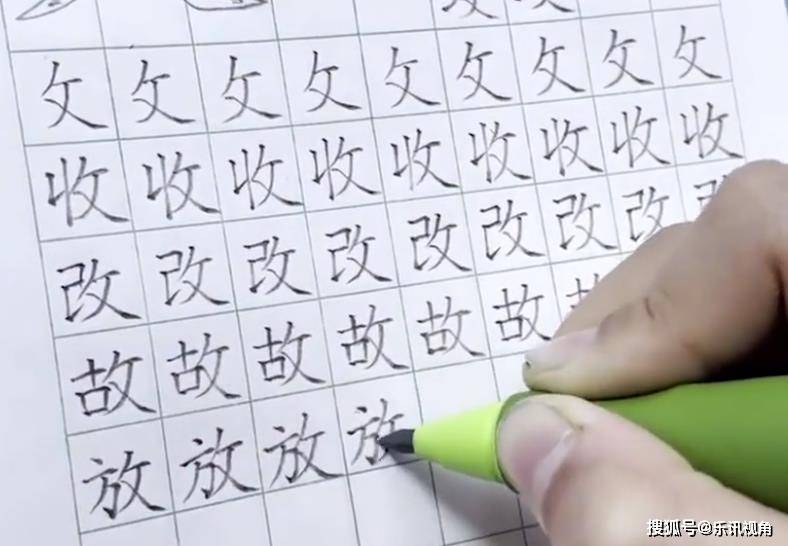 攵攵攵攵攵攵攵攵攵
收收收收收收收收收
改改改改改改改改
故故故故故故
放放放放
搜狐号@乐讯视角